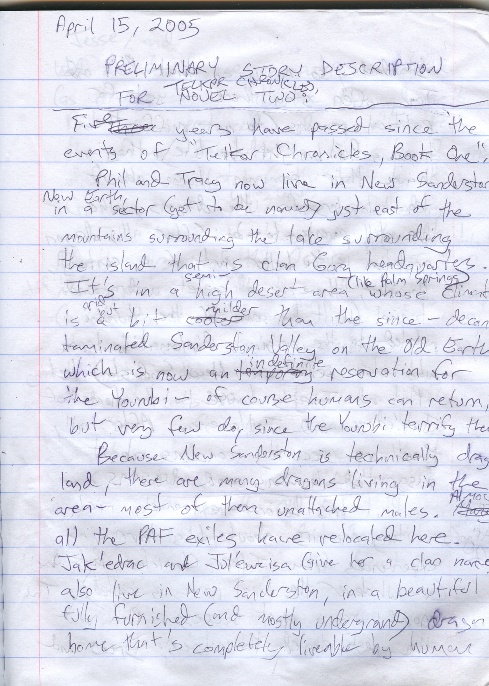 April 15, 2005
PRELIMINARY STORY DESCRIPTION
TELKAR CHRONICLES,
FOR NOVEL TWO:
Five years have passed since the
events of "Telkar Chronicles, Book One".
Phil and Tracy now live in New Sanderston
New Earth,
in a sector (yet to be named) just east of the
mountains surrounding the lake surrounding
the island that is clan Gory headquarters.
semi- (like Palm Springs)
It's in a high desert area whose climate
arid but milder
is a bit cooler than the since-decon
taminated Sanderston Valley on the Old Earth
indefinite
which is now an temporary reservation for
the Younbi - of course humans can return,
but very few do, since the Younbi terrify the
Because New Sanderston is technically drag
land, there are many dragons living in the
Almost
area - most of them unattached males.
all the PAF exiles have relocated here.
Jak'edrac and Jul'eweisa (give her a clan name
also live in New Sanderston, in a beautiful
fully furnished (and mostly underground) dragon
home that's completely liveable by human